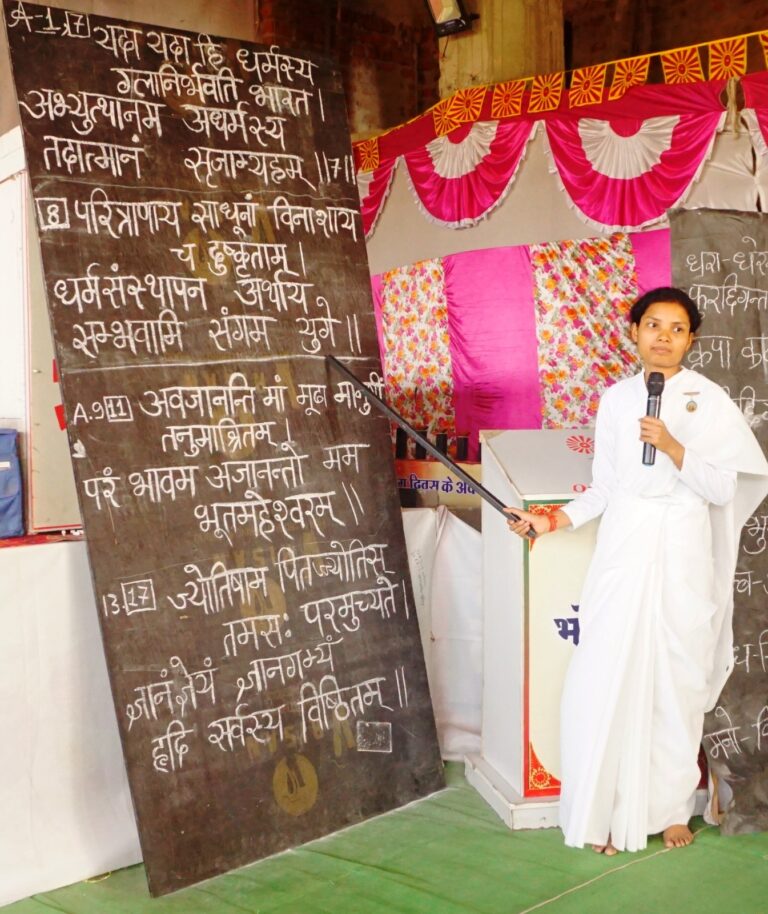 A-1,7 यदा यदा हि धर्मस्य
गलानिर्भवति भारत।
अभ्युत्थानम अधर्मस्य
तदात्मानं सृजाम्यहम् ॥7॥
8 परित्राणाय साधूनां विनाशाय
च दुष्कृताम्।
धर्मसंस्थापन अर्थाय
सम्भवामि संगम युगे॥
A.9 11 अवजानन्ति मां मूढा
तनुमाश्रितम्।
परं भावम अजानन्तो मम
भूतमहेश्वरम्॥
13. 17 ज्योतिषाम पितज्योतिस्
तमसः परमुच्यते।
ज्ञानं ज्ञेयं ज्ञानगम्यं
हृदि सर्वस्य विष्ठितम्॥
दिवस के
धरा-
कृपा